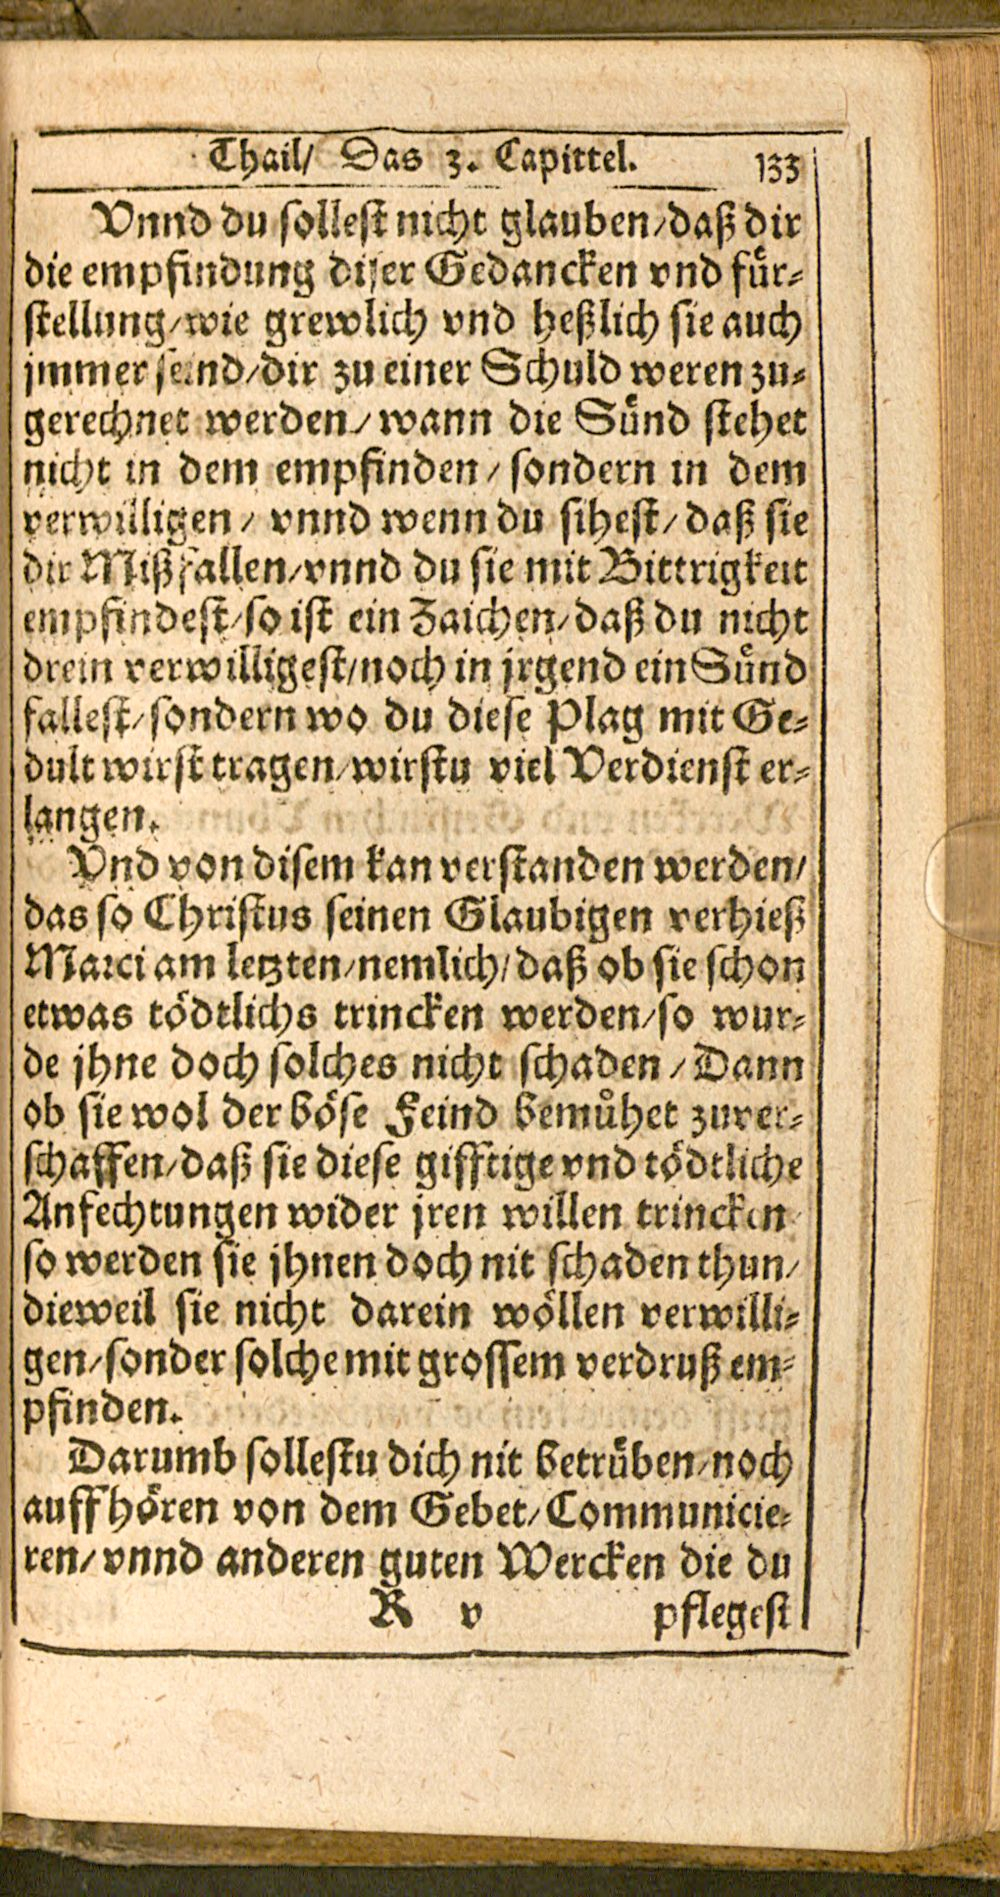 Thail/ Das 3. Capittel. 133
Vnnd du sollest nicht glauben/daß dir
die empfindung diser Gedancken vnd für-
stellung/wie grewlich vnd heßlich sie auch
jmmer seind/dir zu einer Schuld weren zu-
gerechnet werden/wann die Sünd stehet
nicht in dem empfinden/sondern in dem
verwilligen/vnnd wenn du sihest/daß sie
dir Mißfallen/vnnd du sie mit Bittrigkeit
empfindest/so ist ein Zaichen/daß du nicht
drein verwilligest/noch in jrgend ein Sünd
fallest/sondern wo du diese Plag mit Ge-
dult wirst tragen/wirstu viel Verdienst er-
langen.
Vnd von disem kan verstanden werden/
das so Christus seinen Glaubigen verhieß
Marci am letzten/nemlich/daß ob sie schon
etwas tödtlichs trincken werden/so wur-
de jhne doch solches nicht schaden/Dann
ob sie wol der böse Feind bemůhet zuver-
schaffen/daß sie diese gifftige vnd tödtliche
Anfechtungen wider jren willen trincken
so werden sie jhnen doch nit schaden thun/
dieweil sie nicht darein wöllen verwilli-
gen/sonder solche mit grossem verdruß em-
pfinden.
Darumb sollestu dich nit betrüben/noch
auffhören von dem Gebet/Communicie-
ren/vnnd anderen guten Wercken die du
R v pflegest